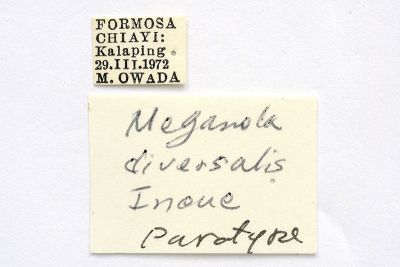 FORMOSA
CHIAYI:
Kalaping
29.III.1972
M. OWADA
Meganola
diversalis
Inoue
Paratype